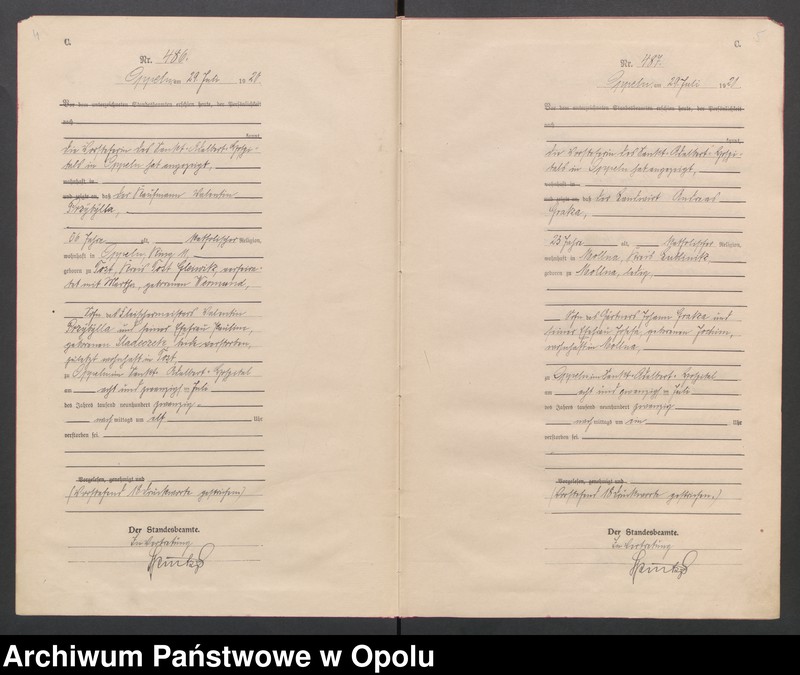 C.
Nr. 486.
Oppeln am 29 Juli 1920.
Vor dem unterzeichneten Standesbeamten erschien heute, der Persönlichkeit
nach
kannt,
die Vorsteherin des Sankt-Adalbert-Hospi-
tals in Oppeln hat angezeigt,
wohnhaft in
und zeigte an, daß der Kaufmann Valentin
Przybylla,
Jahre alt, katholischer Religion,
wohnhaft in Oppeln, Ring 11,
geboren zu Tost, Kreis Tost Gleiwitz, verheira-
tet mit Martha, geborenen
Sohn des Fleischermeisters Valentin
Przybylla und seiner Ehefrau Pauline,
geborenen beide verstorben,
zuletzt wohnhaft in Tost
zu Oppeln im Sankt-Adalbert-Hospital
am acht und zwanzigsten Juli
des Jahres tausend neunhundert zwanzig
nachmittags um elf Uhr
verstorben sei.
Vorgelesen, genehmigt und
(Vorstehend 18 Druckworte gestrichen.)
Der Standesbeamte.
In Vertretung
C.
Nr. 487.
Oppeln am 29 Juli 1920
Vor dem unterzeichneten Standesbeamten erschien heute, der Persönlichkeit
nach
kannt,
die Vorsteherin des Sankt-Adalbert-Hospi-
tals in Oppeln hat angezeigt,
wohnhaft in
und zeigte an, daß der Landwirt Andreas
23 Jahre alt, katholischer Religion,
wohnhaft in Mollna, Kreis Lublinitz
geboren zu Mollna, ledig,
Sohn des Gärtners Johann und
seiner Ehefrau Josefa, geborenen
wohnhaft in Mollna,
zu Oppeln im Sankt-Adalbert-Hospital
am acht und zwanzigsten Juli
des Jahres tausend neunhundert zwanzig
nachmittags um ein Uhr
verstorben sei.
Vorgelesen, genehmigt und
(Vorstehend 18 Druckworte gestrichen.)
Der Standesbeamte.
In Vertretung
Archiwum Państwowe w Opolu